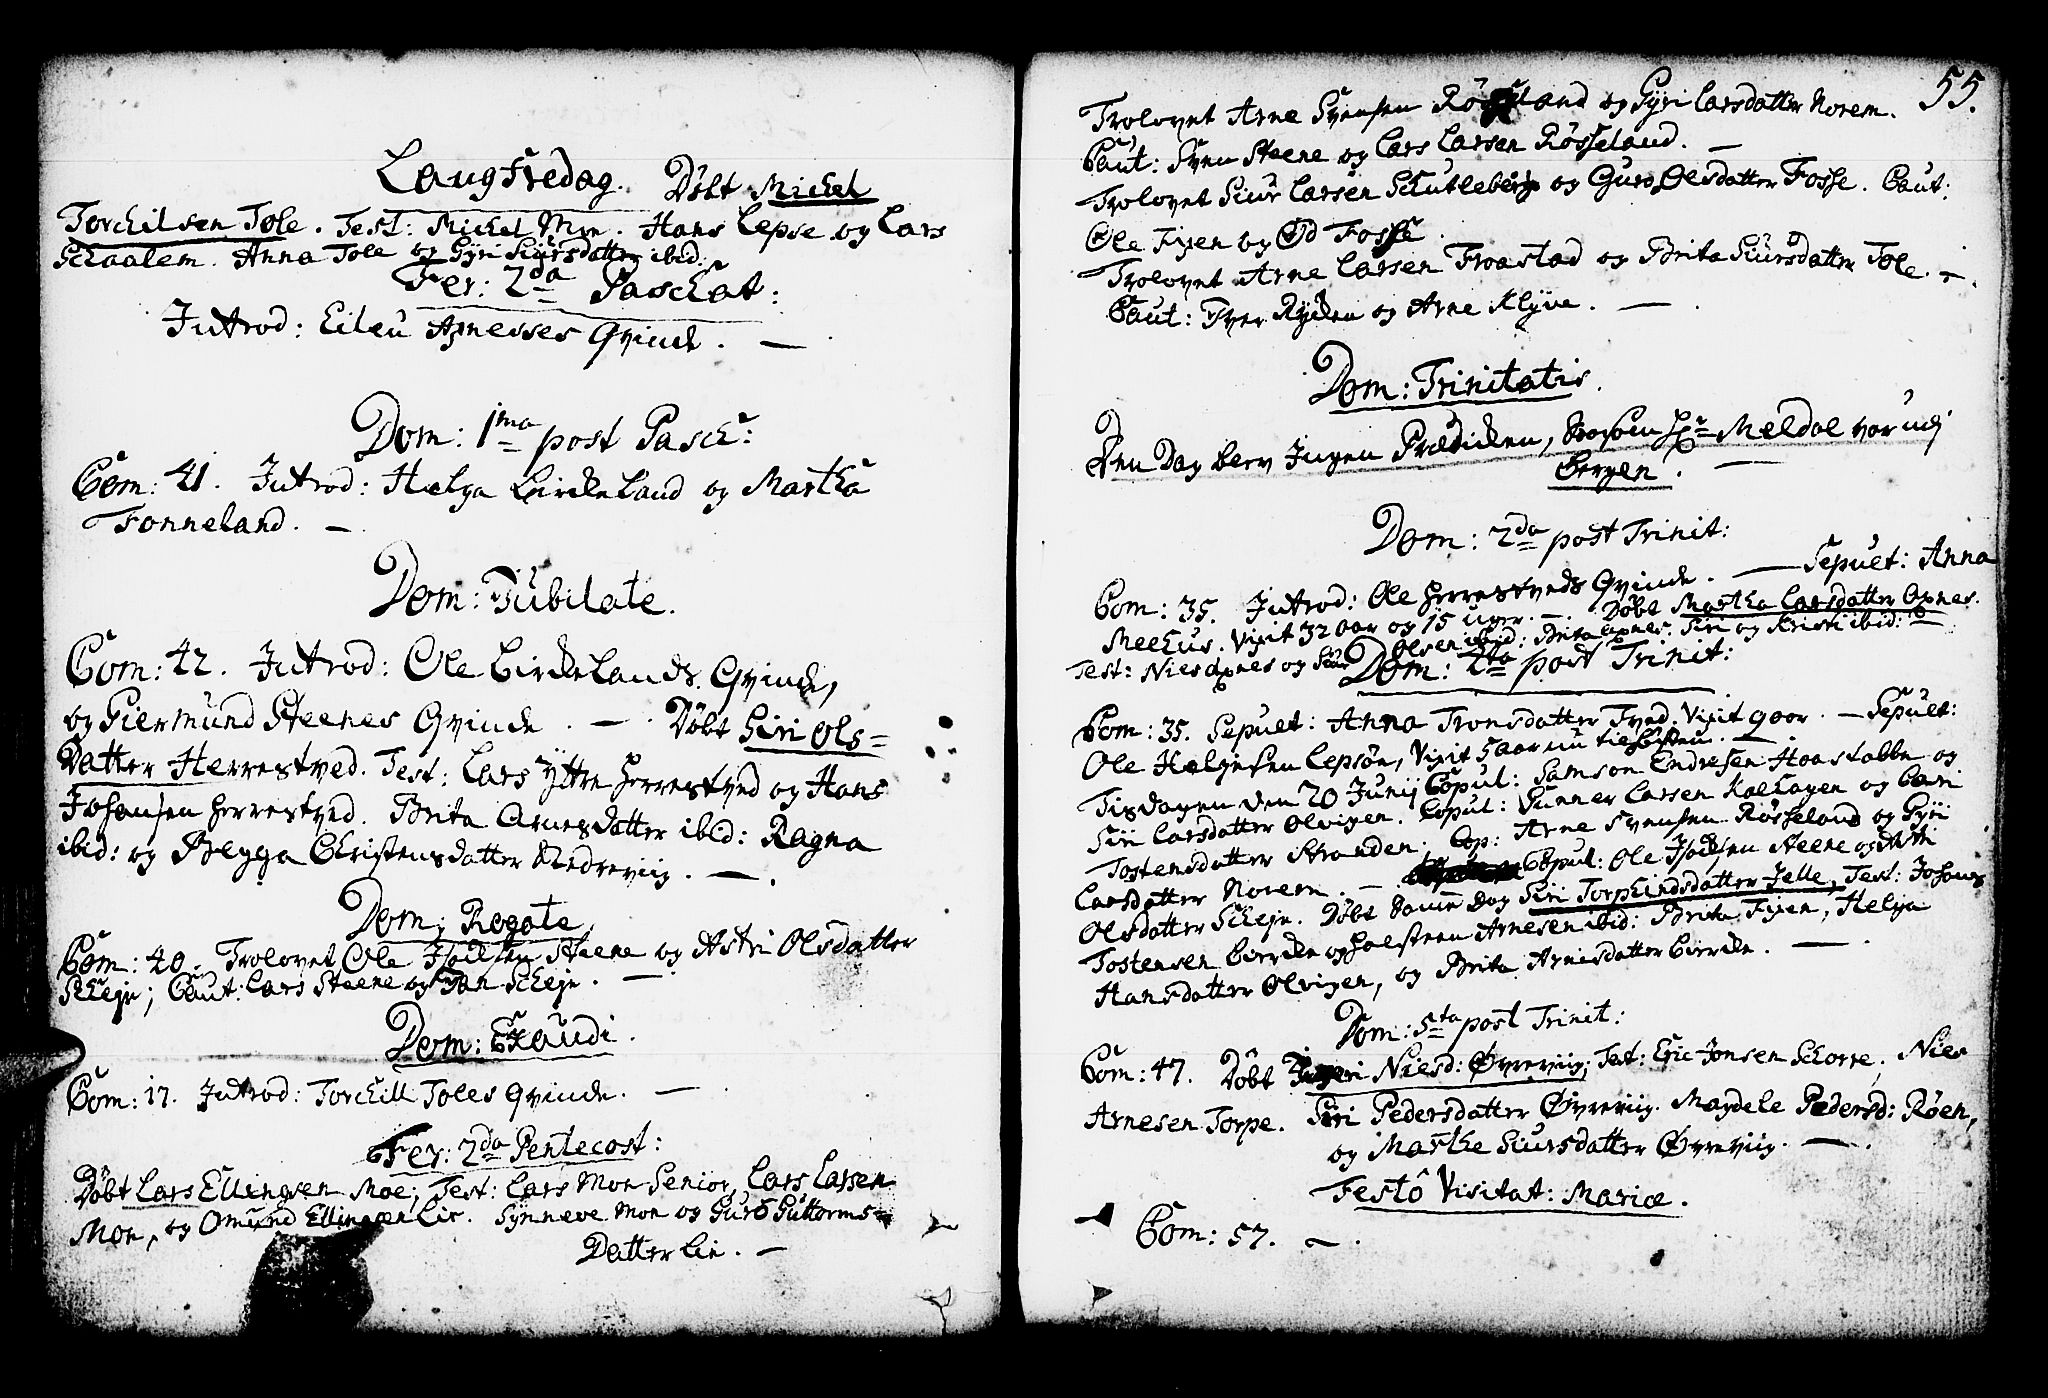 Langfredag. Døbt Michel
Torchilsen Tole. Test: Michel Moe. Hans Lepse og Lars
Schaalem. Anna Tole og Gÿri Siürsdatter ibid:
Fer: 2da Paschat:
Introd: Eilen Apnesses Qvinde. —
Dom: 1ma post Pasch:
Com: 41. Introd: Helga Birckeland og Martha
Tonneland. —
Dom: Jubilate.
Com: 42. Introd: Ole Birckelands Qvinde,
og Giermünd Steenes Qvinde. — . Døbt Siri Ols=
Datter Herrestved. Test: Lars Ÿttre Herrestved og Hans
Johansen Herrestved. Brita Arnesdatter ibid: Ragna
ibid: og Brygga Christensdatter Nedreviig. —
Dom: Rogate
Com: 40. Trolovet Ole Isachsen Steene og Astri Olsdatter
Scheje; Caut: Lars Steene og Jan Scheje. —
Dom: Exaudi.
Com: 17. Introd: Torchill Toles Qvinde. —
Fer: 2da Pentecost:
Døbt Lars Ellingsen Moe; Test: Lars Moe Senior, Lars Larsen
Moe, og Omünd Ellingsen Lie. Sÿnneve Moe og Gürô Güttorms=
Datter Lie. —
55.
Trolovet Arne Svensen Røsseland og Gÿri Larsdatter Norem.
Caut: Sven Steene og Lars Larsen Røsseland. —
Trolovet Siur Larsen Schutleberg og Guro Olsdatter Fosse. Caut:
Ole Tigen og Od Fosse.
Trolovet Arne Larsen Troastad og Brita Siursdatter Tole. —
Caut: Iver Rÿcken og Arne Klÿve. —
Dom: Trinitatis.
Den Dag blev Ingen Prædicken, saasom Hr Meldal var udj
Bergen. —
Dom: 2da post Trinit:
Com: 35. Introd: Ole Herrestveds Qvinde. — Sepult: Anna
Meehus. Vixit 32 aar og 15 uger. — Døbt Martha Larsdatter Apnes.
Test: Niels Apnes og Siur Olsen ibid: Brita Apnes. Siri og Kristi ibid: —
Dom: 4ta post Trinit:
Com: 35. Sepult: Anna Tronsdatter Tved. Vixit 9 aar. — Sepult:
Ole Helgesen Lepsøe, Vixit 5 aar nu til høsten. —
Tisdagen den 20 Junij Copul: Samson Endresen Haastabbe og
Siri Larsdatter Olvigen. Copul: Gunner Larsen Kalhagen og Cari
Tostensdatter Stranden. Cop: Arne Svensen Røsseland og Gÿri
Larsdatter Norem. — Copul: Ole Isachsen Steene og Astri
Olsdatter Scheje. Døbt samme Dag Siri Torphindsdatter Jelle, Test: Johans
Tostensen Bircke og Halsteen Arnesen ibid: Brita Tigen, Helga
Hansdatter Olvigen, og Brita Arnesdatter Bircke. —
Dom: 5ta post Trinit:
Com: 47. Døbt Ingeri Nielsd: Øvreviig; Test: Eric Jonsen Schorre, Niels
Arnesen Torpe. Siri Pedersdatter Øvreviig. Magdele Pedersd: Røen,
og Marthe Siursdatter Øvreviig. —
Festô Visitat: Mariæ.
Com: 57. —